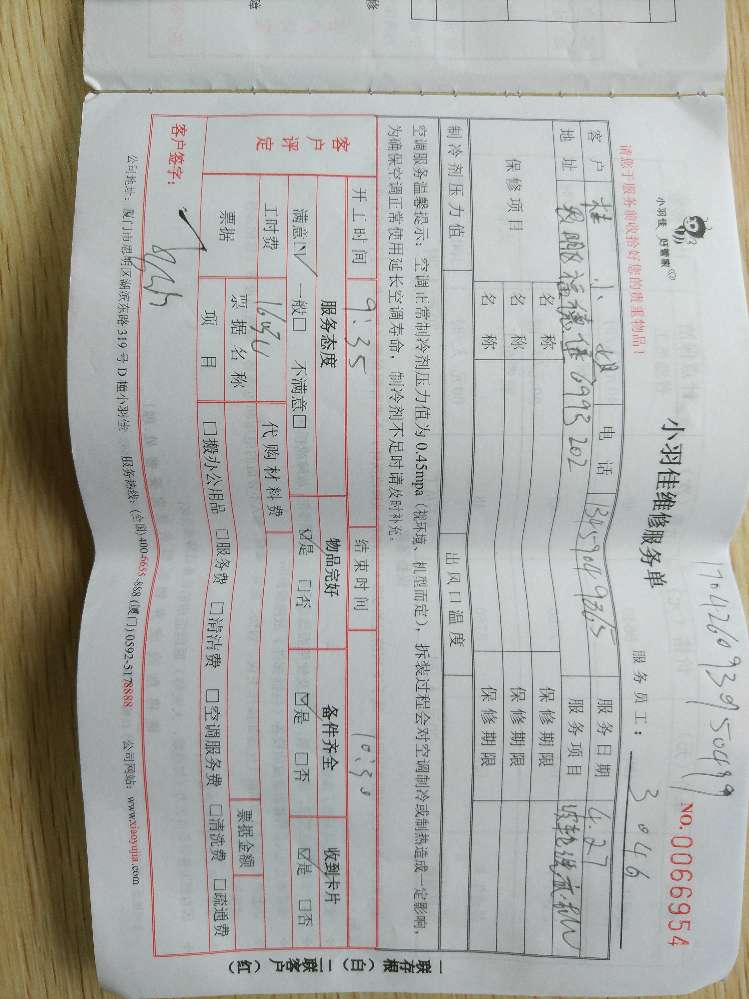 小羽佳 好管家
请您于服务前收拾好您的贵重物品！
小羽佳维修服务单
NO. 0066954
服务员工： 3046
客户 桂小姐 电话 服务日期 4.27
地址 福德佳6993 202 服务项目
保修项目 名称 保修期限
名称 保修期限
名称 保修期限
制冷剂压力值 出风口温度
空调服务温馨提示：空调正常制冷剂压力值为0.45mpa（视环境、机型而定），拆装过程会对空调制冷或制热造成一定影响，
为确保空调正常使用延长空调寿命，制冷剂不足时请及时补充。
开工时间 9:35 结束时间 10:30
客户评定 服务态度 物品完好 备件齐全 收到卡片
满意☑ 一般□ 不满意□ ☑是 □否 ☑是 □否 ☑是 □否
工时费 160元 代购材料费
票据 票据名称 票据金额
项目 □搬办公用品 □服务费 □清洁费 □空调服务费 □清洗费 □疏通费
客户签字：
公司地址：厦门市思明区湖滨东路319号D幢小羽佳 服务热线：(全国)400-6688-888 (厦门)0592-5178888 公司网站：www.xiaoyujia.com
一联存根（白）二联客户（红）